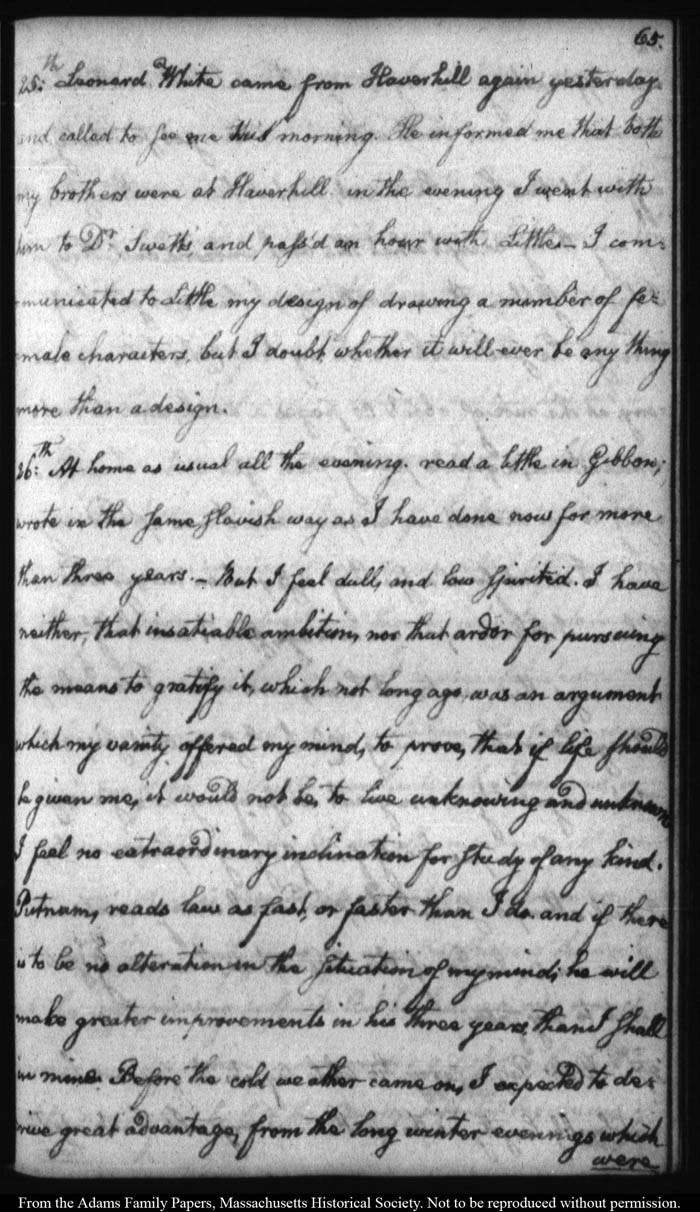 65.
25:th Leonard a White came from Haverhill again yesterday
and called to see me this morning. He informed me that both
my brothers were at Haverhill. in the evening I went with
him to Dr. Swett's, and pass'd an hour with Little.— I com=
municated to Little my design of drawing a number of fe=
male characters, but I doubt, whether it will ever be any thing
more than a design.
26:th At home as usual all the evening. read a little in Gibbon;
wrote in the same slavish way as I have done now for more
than three years.— But I feel dull, and low spirited. I have
neither, that insatiable ambition, nor that ardor for pursuing
the means to gratify it, which not long ago, was an argument
which my vanity offered my mind, to prove, that if life should
be given me, it would not be, to live unknowing and unknown
I feel no extraordinary inclination for study of any kind.
Putnam, reads law as fast, or faster than I do. and if there
is to be no alteration in the situation of my mind; he will
make greater improvements in his three years, than I shall
in mine. Before the cold weather came on, I expected to de=
rive great advantage, from the long winter evenings which
were
From the Adams Family Papers, Massachusetts Historical Society. Not to be reproduced without permission.